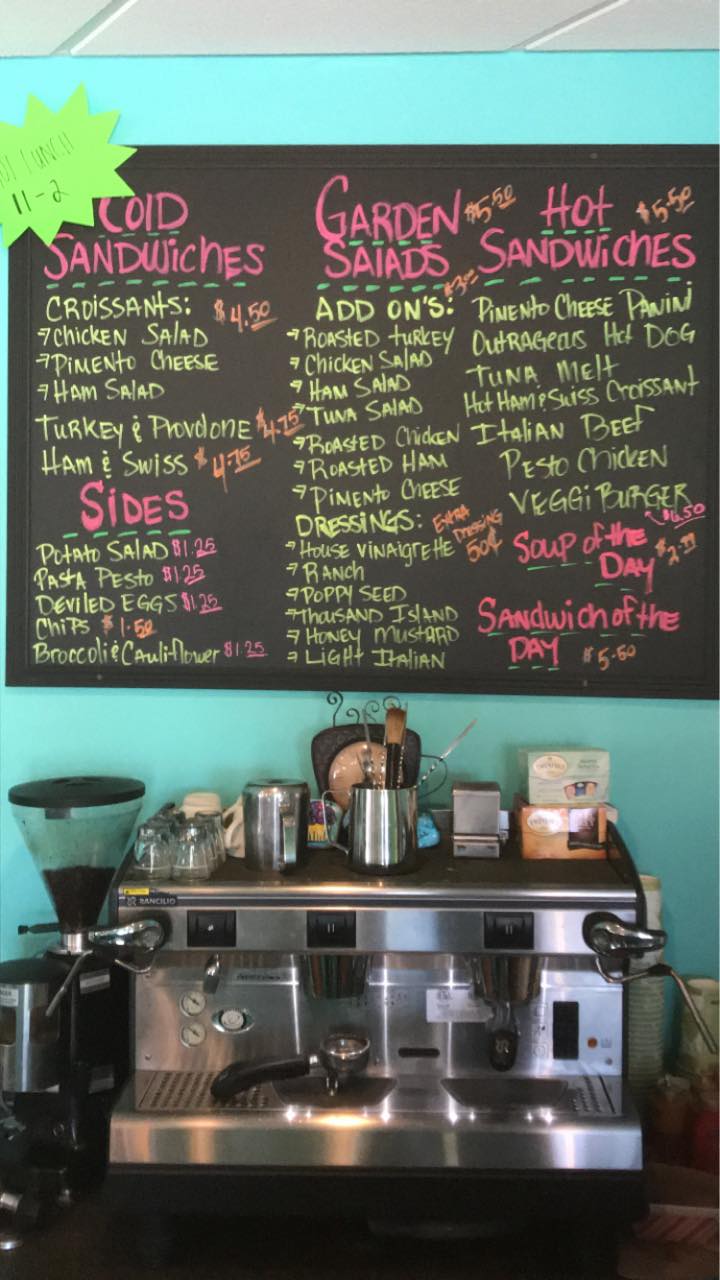 LUNCH
11-2
COLD
SANDWICHES
CROISSANTS: $4.50
CHICKEN SALAD
PIMENTO CHEESE
HAM SALAD
TURKEY & PROVOLONE $4.75
HAM & SWISS $4.75
SIDES
POTATO SALAD $1.25
PASTA PESTO $1.25
DEVILED EGGS $1.25
CHIPS $1.50
BROCCOLI & CAULIFLOWER $1.25
GARDEN $5.50
SALADS
ADD ON'S: $3.00
ROASTED TURKEY
CHICKEN SALAD
HAM SALAD
TUNA SALAD
ROASTED CHICKEN
ROASTED HAM
PIMENTO CHEESE
DRESSINGS: EXTRA DRESSING 50¢
HOUSE VINAIGRETTE
RANCH
POPPY SEED
THOUSAND ISLAND
HONEY MUSTARD
LIGHT ITALIAN
HOT $5.50
SANDWICHES
PIMENTO CHEESE PANINI
OUTRAGEOUS HOT DOG
TUNA MELT
HOT HAM & SWISS CROISSANT
ITALIAN BEEF
PESTO CHICKEN
VEGGI BURGER
$6.50
SOUP of the
DAY
SANDWICH of the
DAY $5.50
RANCILIO